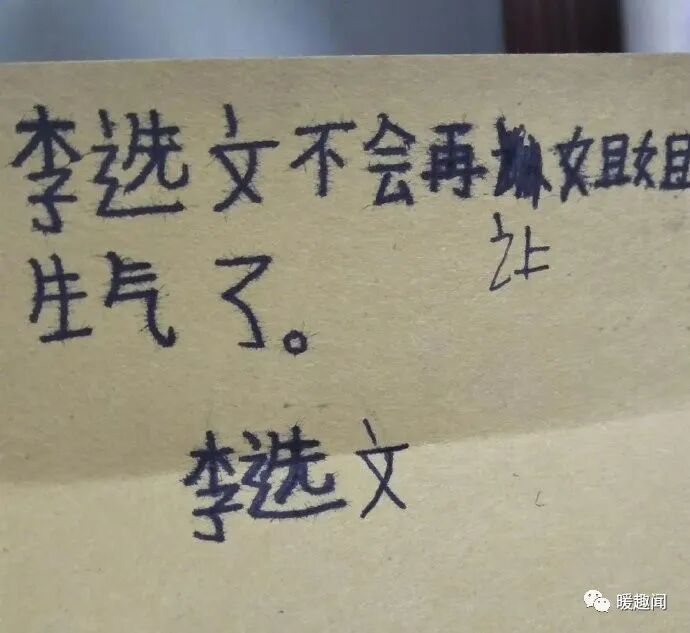 李选文不会再让姐姐
生气了。
李选文
暖趣闻